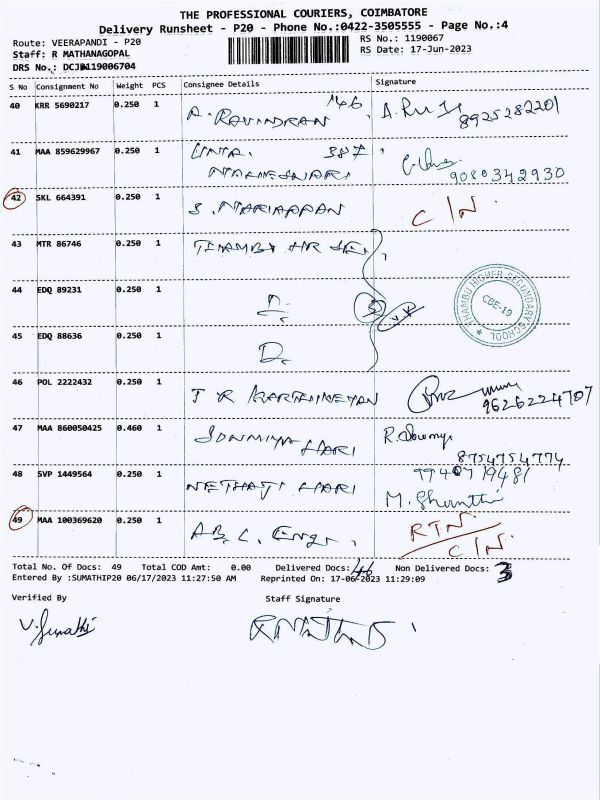 THE PROFESSIONAL COURIERS, COIMBATORE
Delivery Runsheet - P20 - Phone No.:0422-3505555 - Page No.:4
Route: VEERAPANDI - P20
RS No.: 1190067
Staff: R MATHANAGOPAL
RS Date: 17-Jun-2023
DRS No.: DCJB119006704
S No Consignment No Weight PCS Consignee Details Signature
40 KRR 5690217 0.250 1 A. RAVINDRAN 146 8925282201
41 MAA 859629967 0.250 1 UMA. 387
MAHESWARI 9080342930
42 SKL 664391 0.250 1 S. MARIAPPAN C/N.
43 MTR 86746 0.250 1 THAMBU HR SE
44 EDQ 89231 0.250 1 D. 3
THAMBU HIGHER SECONDARY SCHOOL CBE-19
45 EDQ 88636 0.250 1 D.
46 POL 2222432 0.250 1 T R KARTHIKEYAN 9626224707
47 MAA 860050425 0.460 1 SOWMIYA HARI R. Sowmya
8754754774
48 SVP 1449564 0.250 1 NETHAJI HARI 9940719481
M. Shanthi
49 MAA 100369620 0.250 1 ABC Engr. RTN
C/N.
Total No. Of Docs: 49 Total COD Amt: 0.00 Delivered Docs: 46 Non Delivered Docs: 3
Entered By :SUMATHIP20 06/17/2023 11:27:50 AM Reprinted On: 17-06-2023 11:29:09
Verified By Staff Signature
V. Sumathi